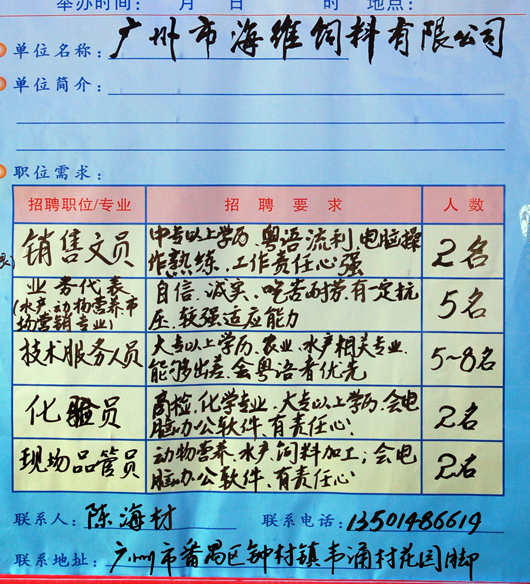 举办时间： 月 日 时 地点：
单位名称：广州市海维饲料有限公司
单位简介：
职位需求：
招聘职位/专业 招聘要求 人数
销售文员 中专以上学历、粤语流利、电脑操 2名
作熟练、工作责任心强
业务代表 自信、诚实、吃苦耐劳、有一定抗 5名
(水产、动物营养、市 压、较强适应能力
场营销专业)
技术服务人员 大专以上学历、农业、水产相关专业、 5-8名
能够出差、会粤语者优先
化验员 商检、化学专业、大专以上学历、会电 2名
脑办公软件、有责任心、
现场品管员 动物营养、水产、饲料加工；会电 2名
脑办公软件、有责任心
联系人：陈海材 联系电话：13501486619
联系地址：广州市番禺区钟村镇韦涌村花园脚